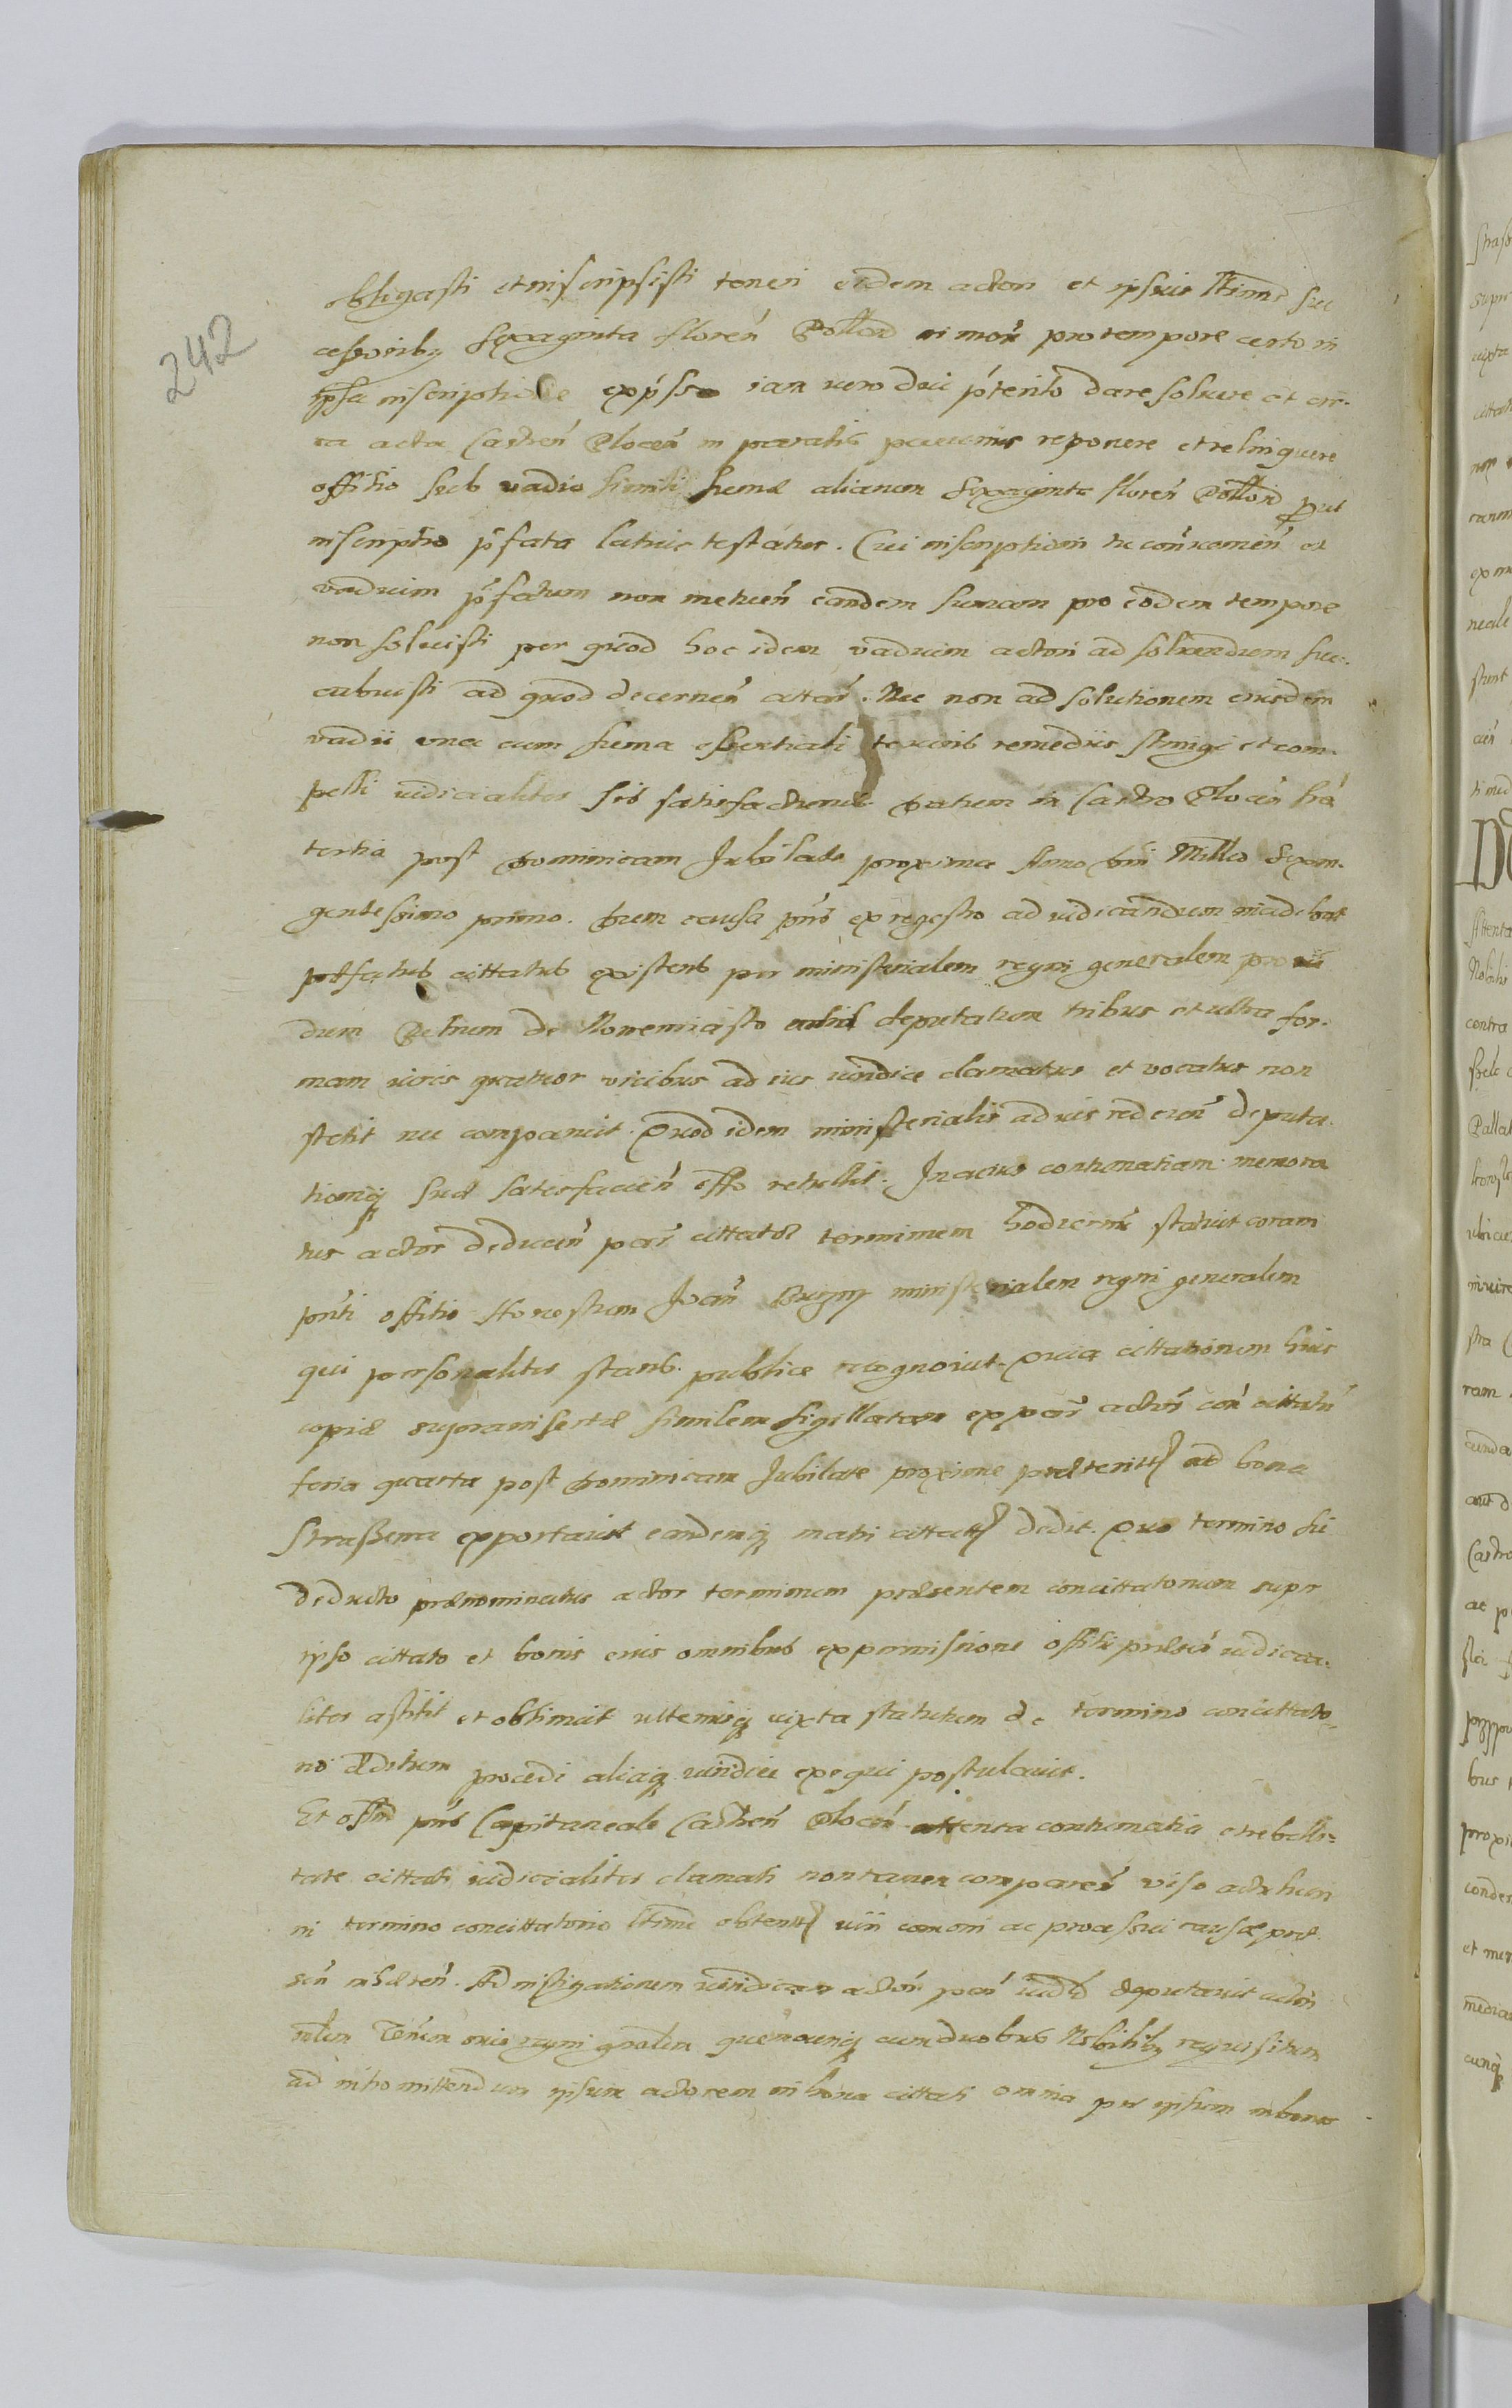 242
obligasti et inscripsisti teneri eidem actori et ipsius ltimis suc
cessoribq Sexaginta floren Pollon in mon pro tempore certo in
ipsa inscriptione expsso iam vero diu pterito dare soluere et cir-
ca acta Castren Plocen in paratis pecuniis reponere et relinquere
offitio sub vadio simili sumæ aliarum Sexaginta floren Pollon put
inscriptio pfata latius testatur. Cui inscriptioni tu contrauenien et
vadium pfatum non metuen eandem sumam pro eodem tempore
non soluisti per quod hoc idem vadium actori ad soluendum suc-
cubuisti ad quod decernen citar. Nec non ad solutionem eiusdem
vadii una cum suma essentiali remediis stringi et com-
pelli iudicialiter sis satisfacturus. Datum in Castro Plocen fia
tertia post Dominicam Jubilate proxima Anno Dni Millo Sexcen-
gentessimo primo. Dum causa pns ex regestro ad iudicandum incideret
præfatus cittatus existens per ministerialem regni generalem prouid
dum Petrum de Nouemiasto deputatum tribus et ultra for-
mam iuris quatuor vicibus ad ius iuridice clamatus et vocatus non
stetit nec comparuit. Quod idem ministerialis ad ius redeun deputa-
tioniq suæ satisfacien offo retullit. In cuius contumatiam memora
tus actor deducen par cittatæ terminum hodiernu statuit coram
pnti offitio Honestum Joan ministerialem regni generalem
qui personaliter stans publice recognouit. Quia cittationem huic
copiæ suprainsertæ similem sigillatam ex par actris con cittatu
feria quarta post Dominicam Jubilate proxime præterita ad bona
exportauit eandemq dedit. Quo termino sic
deducto prænominatus actor terminum præsentem concittatorium supr
ipso cittato et bonis eius omnibus ex permissione offitii præsen iudicia-
liter astitit et obtinuit ulteriusq iuxta statutum de termino concittato-
rio æditum procedi aliaq iuridice exequi postulauit.
Et offm pns Capitaneale Castren Plocen attenta contumatia et rebelli-
tate cittati iudicialiter clamati non tamen comparen viso actu
in termino concittatorio ltime obtento iuri comoni ac processui causæ præ
sen inhæren. Ad instigationem iuridicam actor par deputauit
regni gnalem quemcunq cum duobus Nobilibq requisitum
ad intromittendum ipsum actorem in bona cittati omnia per ipsum in bonis